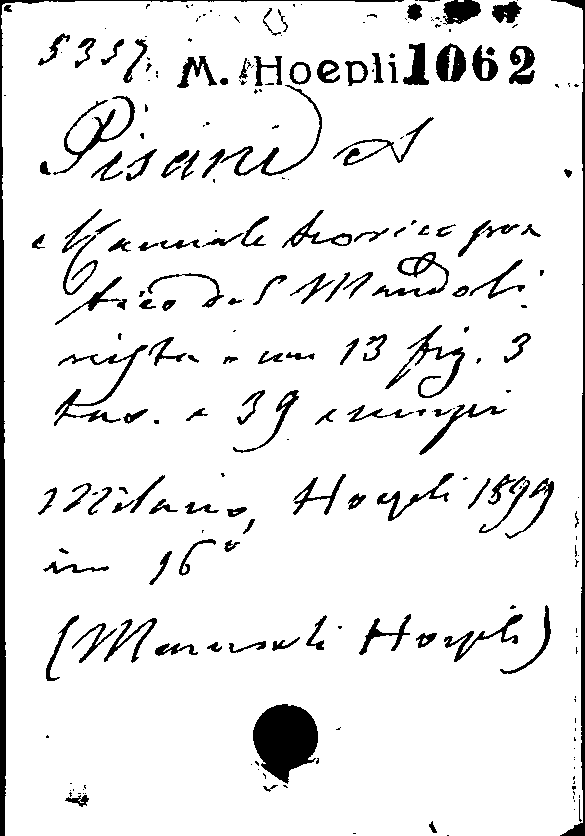 5357. M. Hoepli 1062
Pisani A
Manuale teorico pra
tico del Mandoli
nista con 13 fig. 3
tav. e 39 esempi
Milano, Hoepli 1899
in 16°
(Manuali Hoepli)